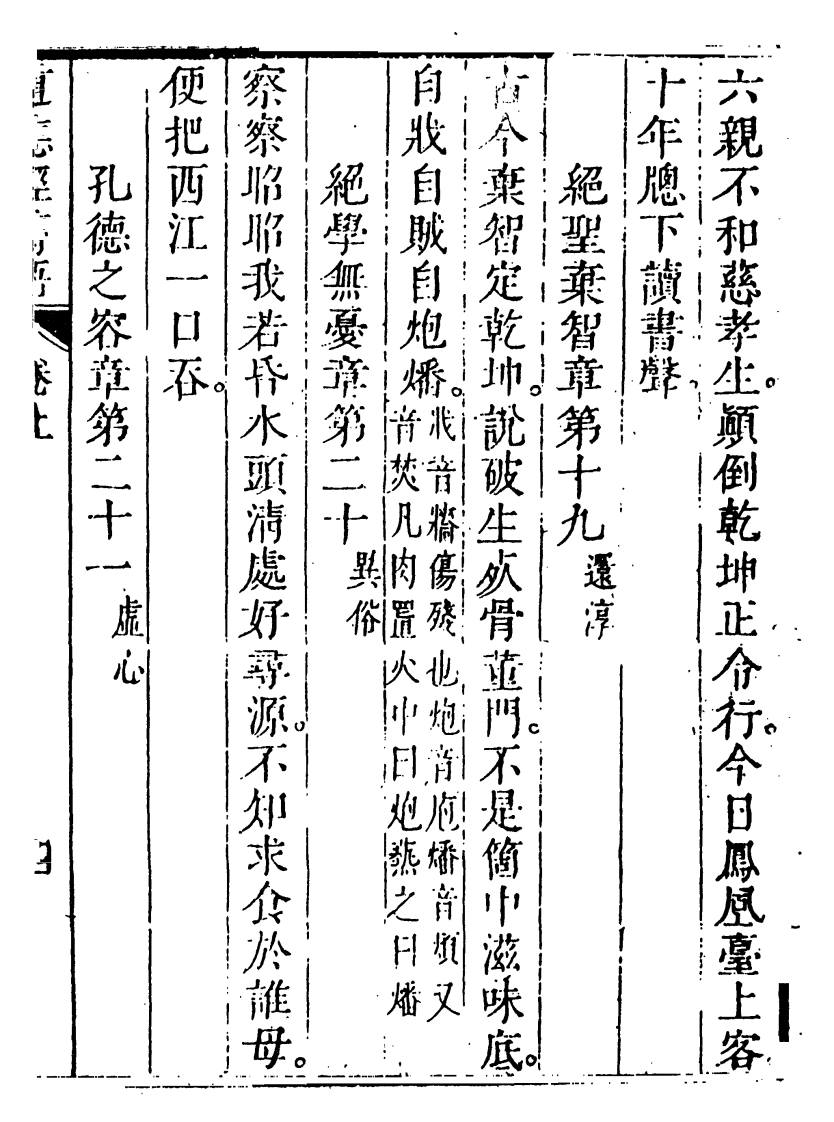 六親不和慈孝生。顛倒乾坤正令行。今日鳳凰臺上客
十年牕下讀書聲。
絕聖棄智章第十九 還淳
古今棄智定乾坤。說破生死骨董門。不是箇中滋味底。
自戕自賊自炮燔。戕音牆傷殘也炮音庖燔音煩又
音焚凡肉置火中曰炮爇之曰燔
絕學無憂章第二十 異俗
察察昭昭我若昏水頭清處好尋源。不知求食於誰母。
便把西江一口吞。
孔德之容章第二十一 虛心
卷上